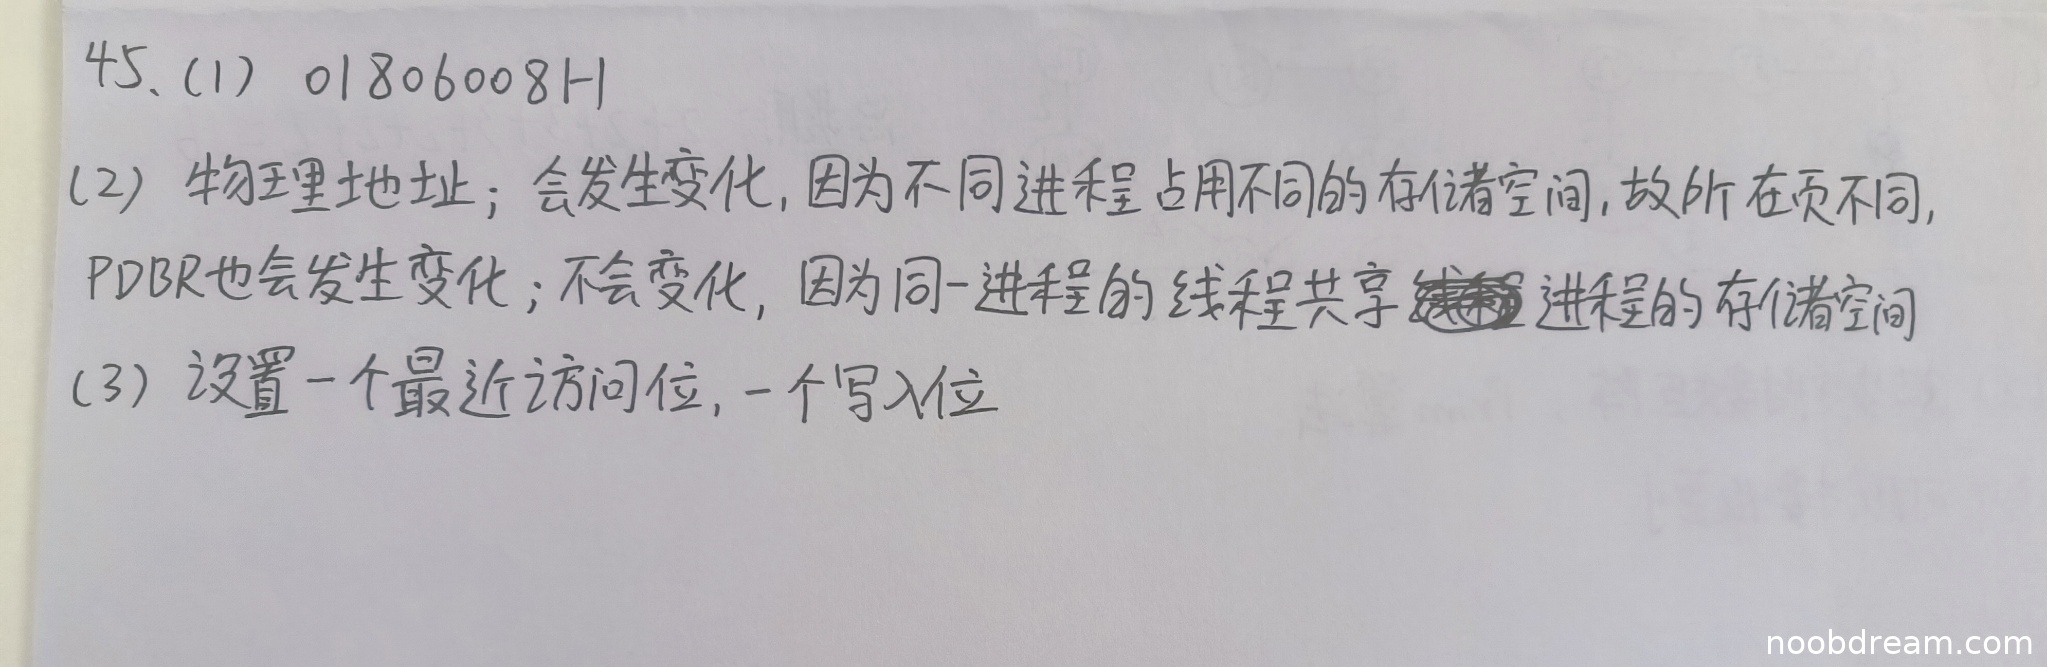 45、(1) 01806008H
(2) 物理地址；会发生变化，因为不同进程占用不同的存储空间，故所在页不同，
PDBR也会发生变化；不会变化，因为同一进程的线程共享 进程的存储空间
(3) 设置一个最近访问位，一个写入位
noobdream.com